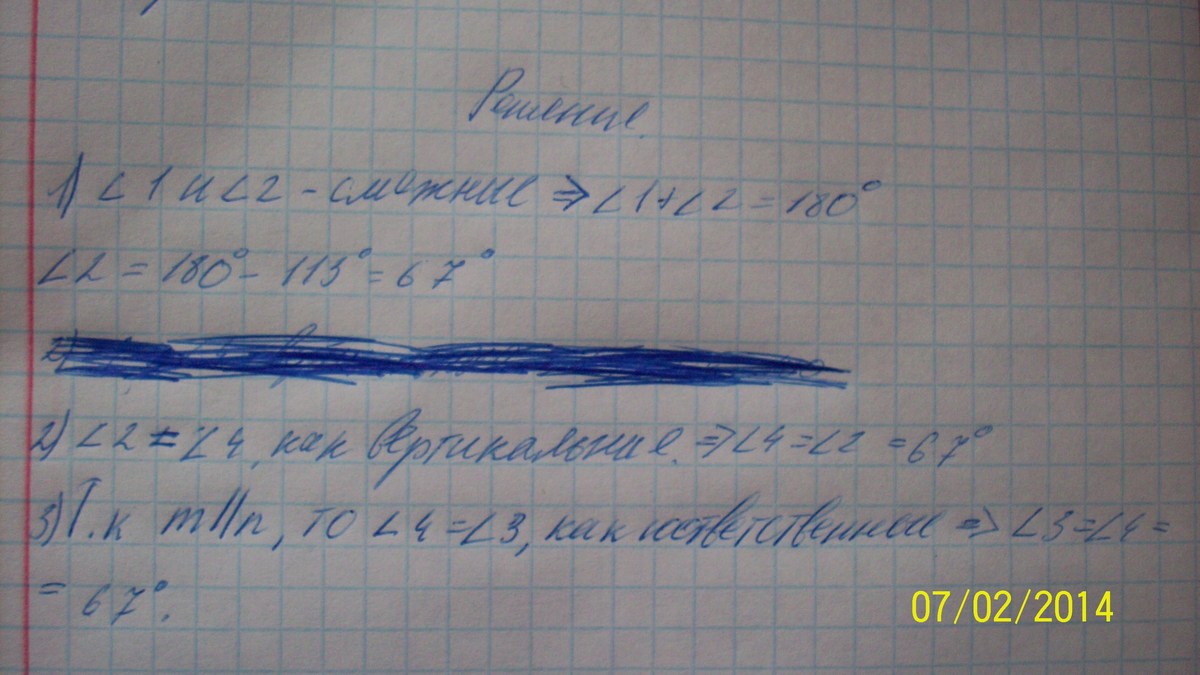 Решение.
1) ∠1 и ∠2 - смежные ⇒ ∠1+∠2 = 180°
∠2 = 180° - 113° = 67°
2) ∠2 = ∠4, как вертикальные. ⇒ ∠4 = ∠2 = 67°
3) Т.к m||n, то ∠4 = ∠3, как соответственные ⇒ ∠3 = ∠4 =
= 67°.
07/02/2014